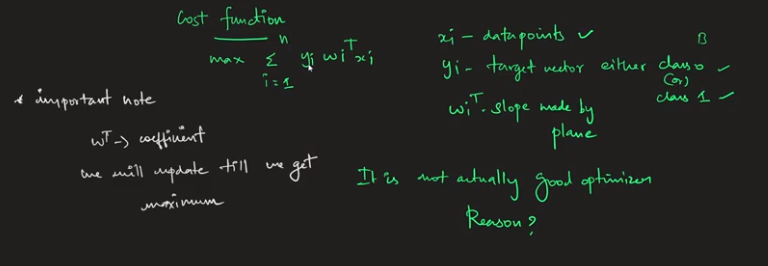 Cost function
max Σ_{i=1}^{n} yi wi^T xi
* important note
w^T -> coefficient
we will update till we get
maximum
xi - datapoints ✓
B
yi - target vector either class 0 ✓
(or)
class 1 ✓
wi^T - slope made by
plane
It is not actually good optimizer
Reason?